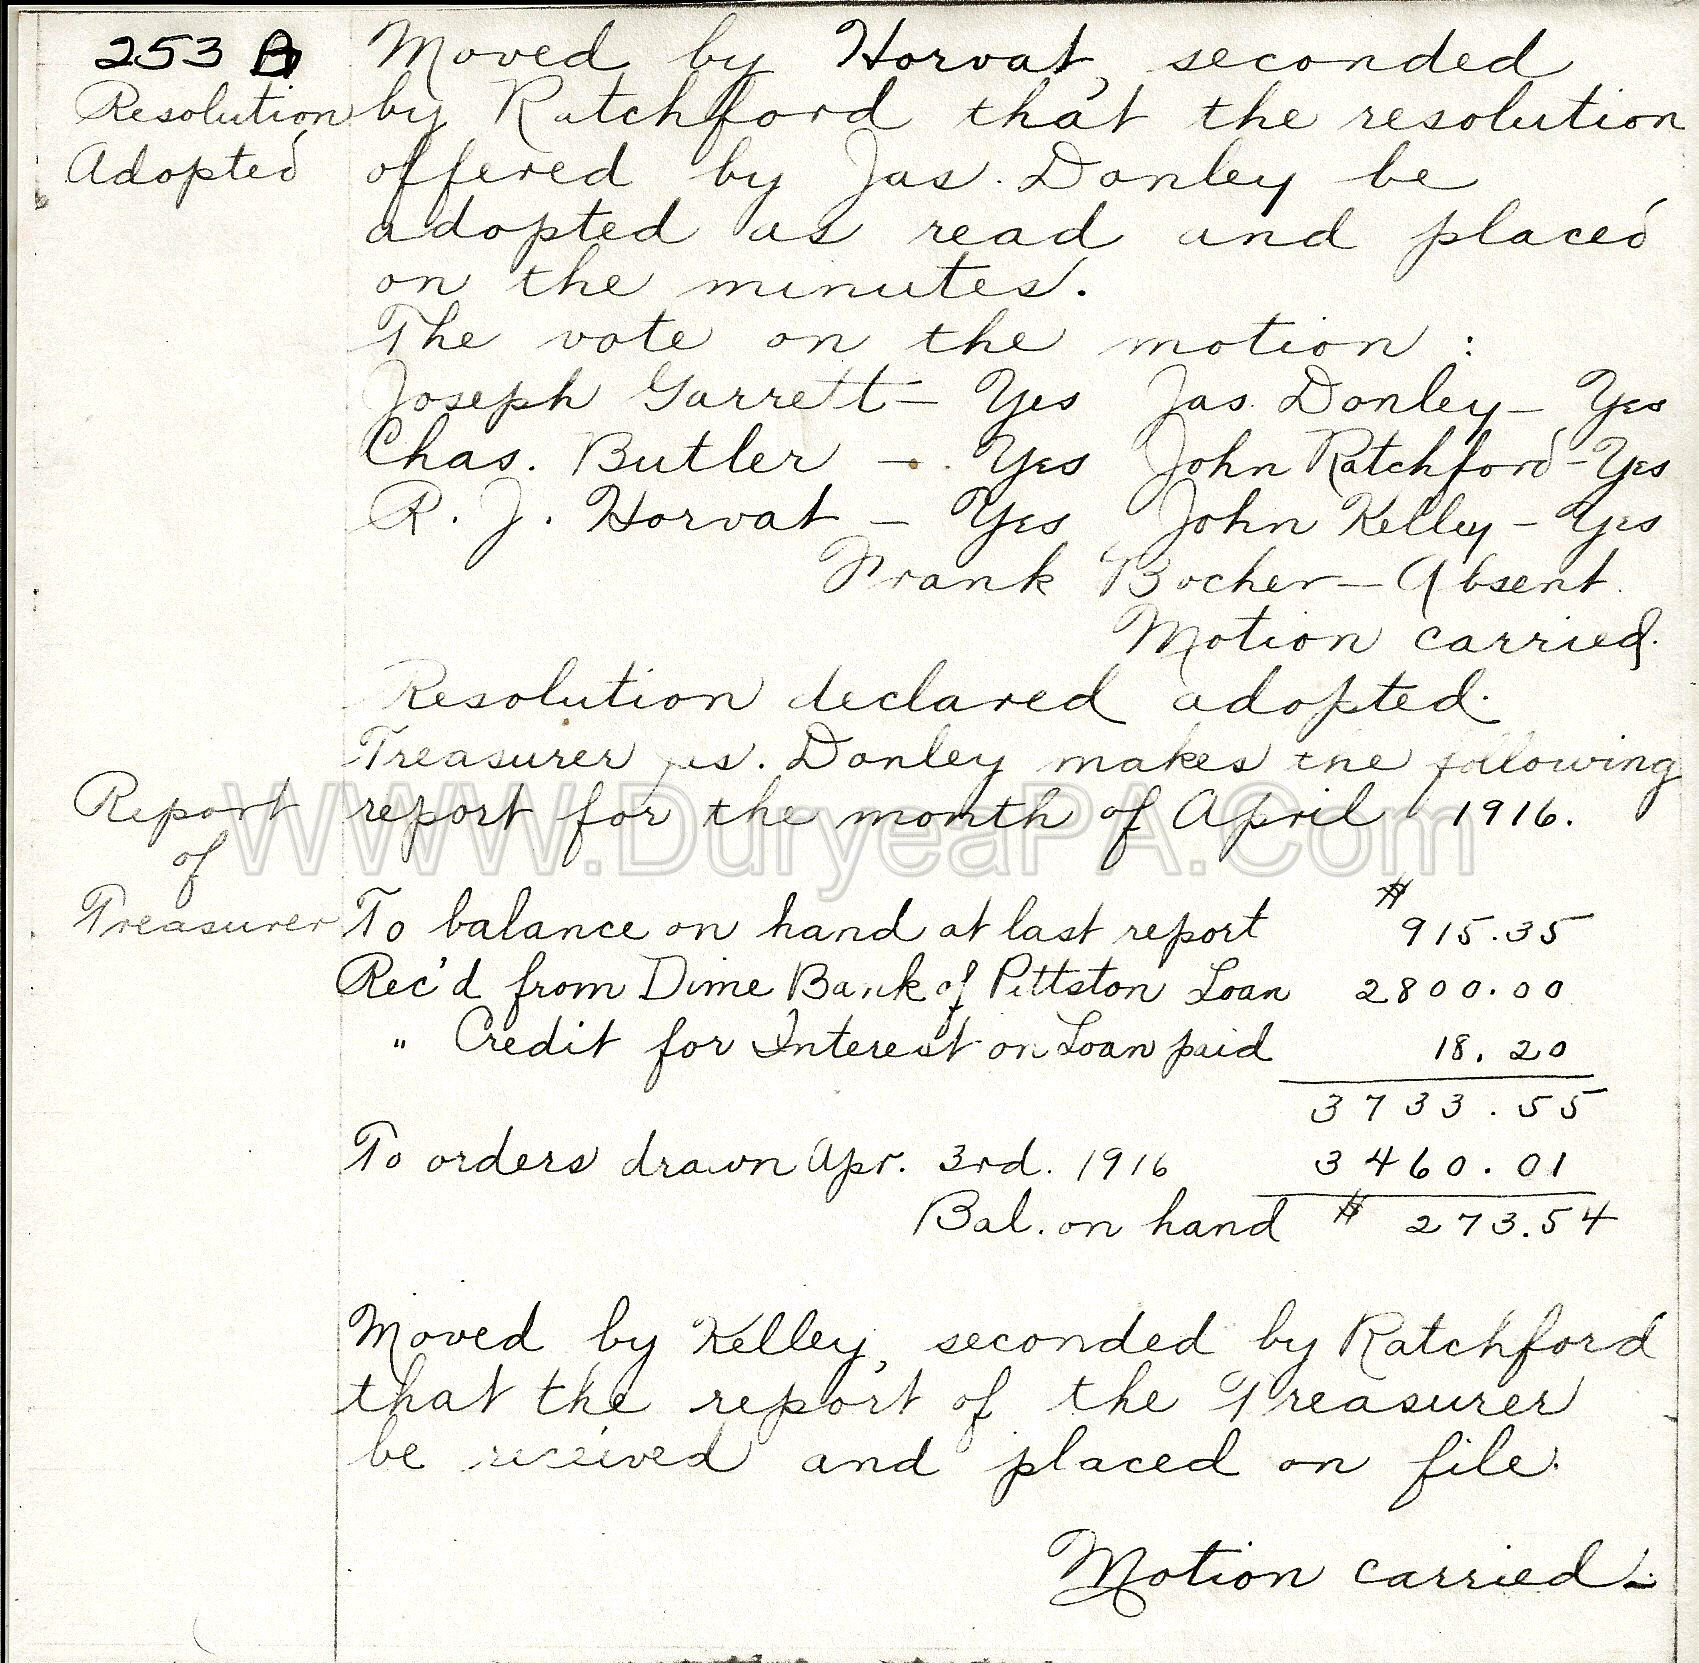 253 A
Resolution
Adopted
Moved by Horvat, seconded
by Ratchford that the resolution
offered by Jas. Donley be
adopted as read and placed
on the minutes.
The vote on the motion :
Joseph Garrett – Yes Jas. Donley – Yes
Chas. Butler – Yes John Ratchford – Yes
R. J. Horvat – Yes John Kelley – Yes
Frank Bocher – Absent.
Motion carried.
Resolution declared adopted.
Report
of
Treasurer
Treasurer Jas. Donley makes the following
report for the month of April 1916.
WWW.DuryeaPA.Com
$
To balance on hand at last report 915.35
Rec'd from Dime Bank of Pittston Loan 2800.00
" Credit for Interest on Loan paid 18.20
3733.55
To orders drawn Apr. 3rd. 1916 3460.01
Bal. on hand $ 273.54
Moved by Kelley, seconded by Ratchford
that the report of the Treasurer
be received and placed on file.
Motion carried.